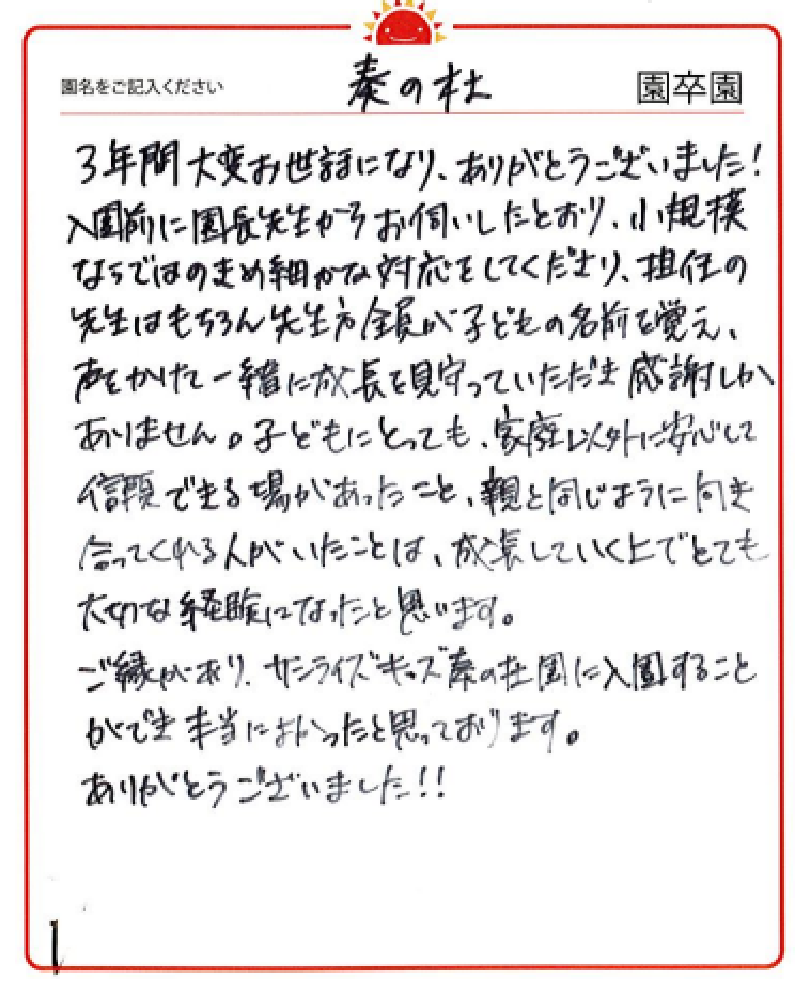 園名をご記入ください 奏の杜 園卒園
3年間大変お世話になり、ありがとうございました!
入園前に園長先生からお伺いしたとおり、小規模
ならではのきめ細かな対応をしてくださり、担任の
先生はもちろん先生方全員が子どもの名前を覚え、
声をかけて一緒に成長を見守っていただき感謝しか
ありません。子どもにとっても、家庭以外に安心して
信頼できる場があったこと、親と同じように向き
合ってくれる人がいたことは、成長していく上でとても
大切な経験になったと思います。
ご縁があり、サンライズキッズ奏の杜園に入園すること
ができ本当によかったと思っております。
ありがとうございました!!